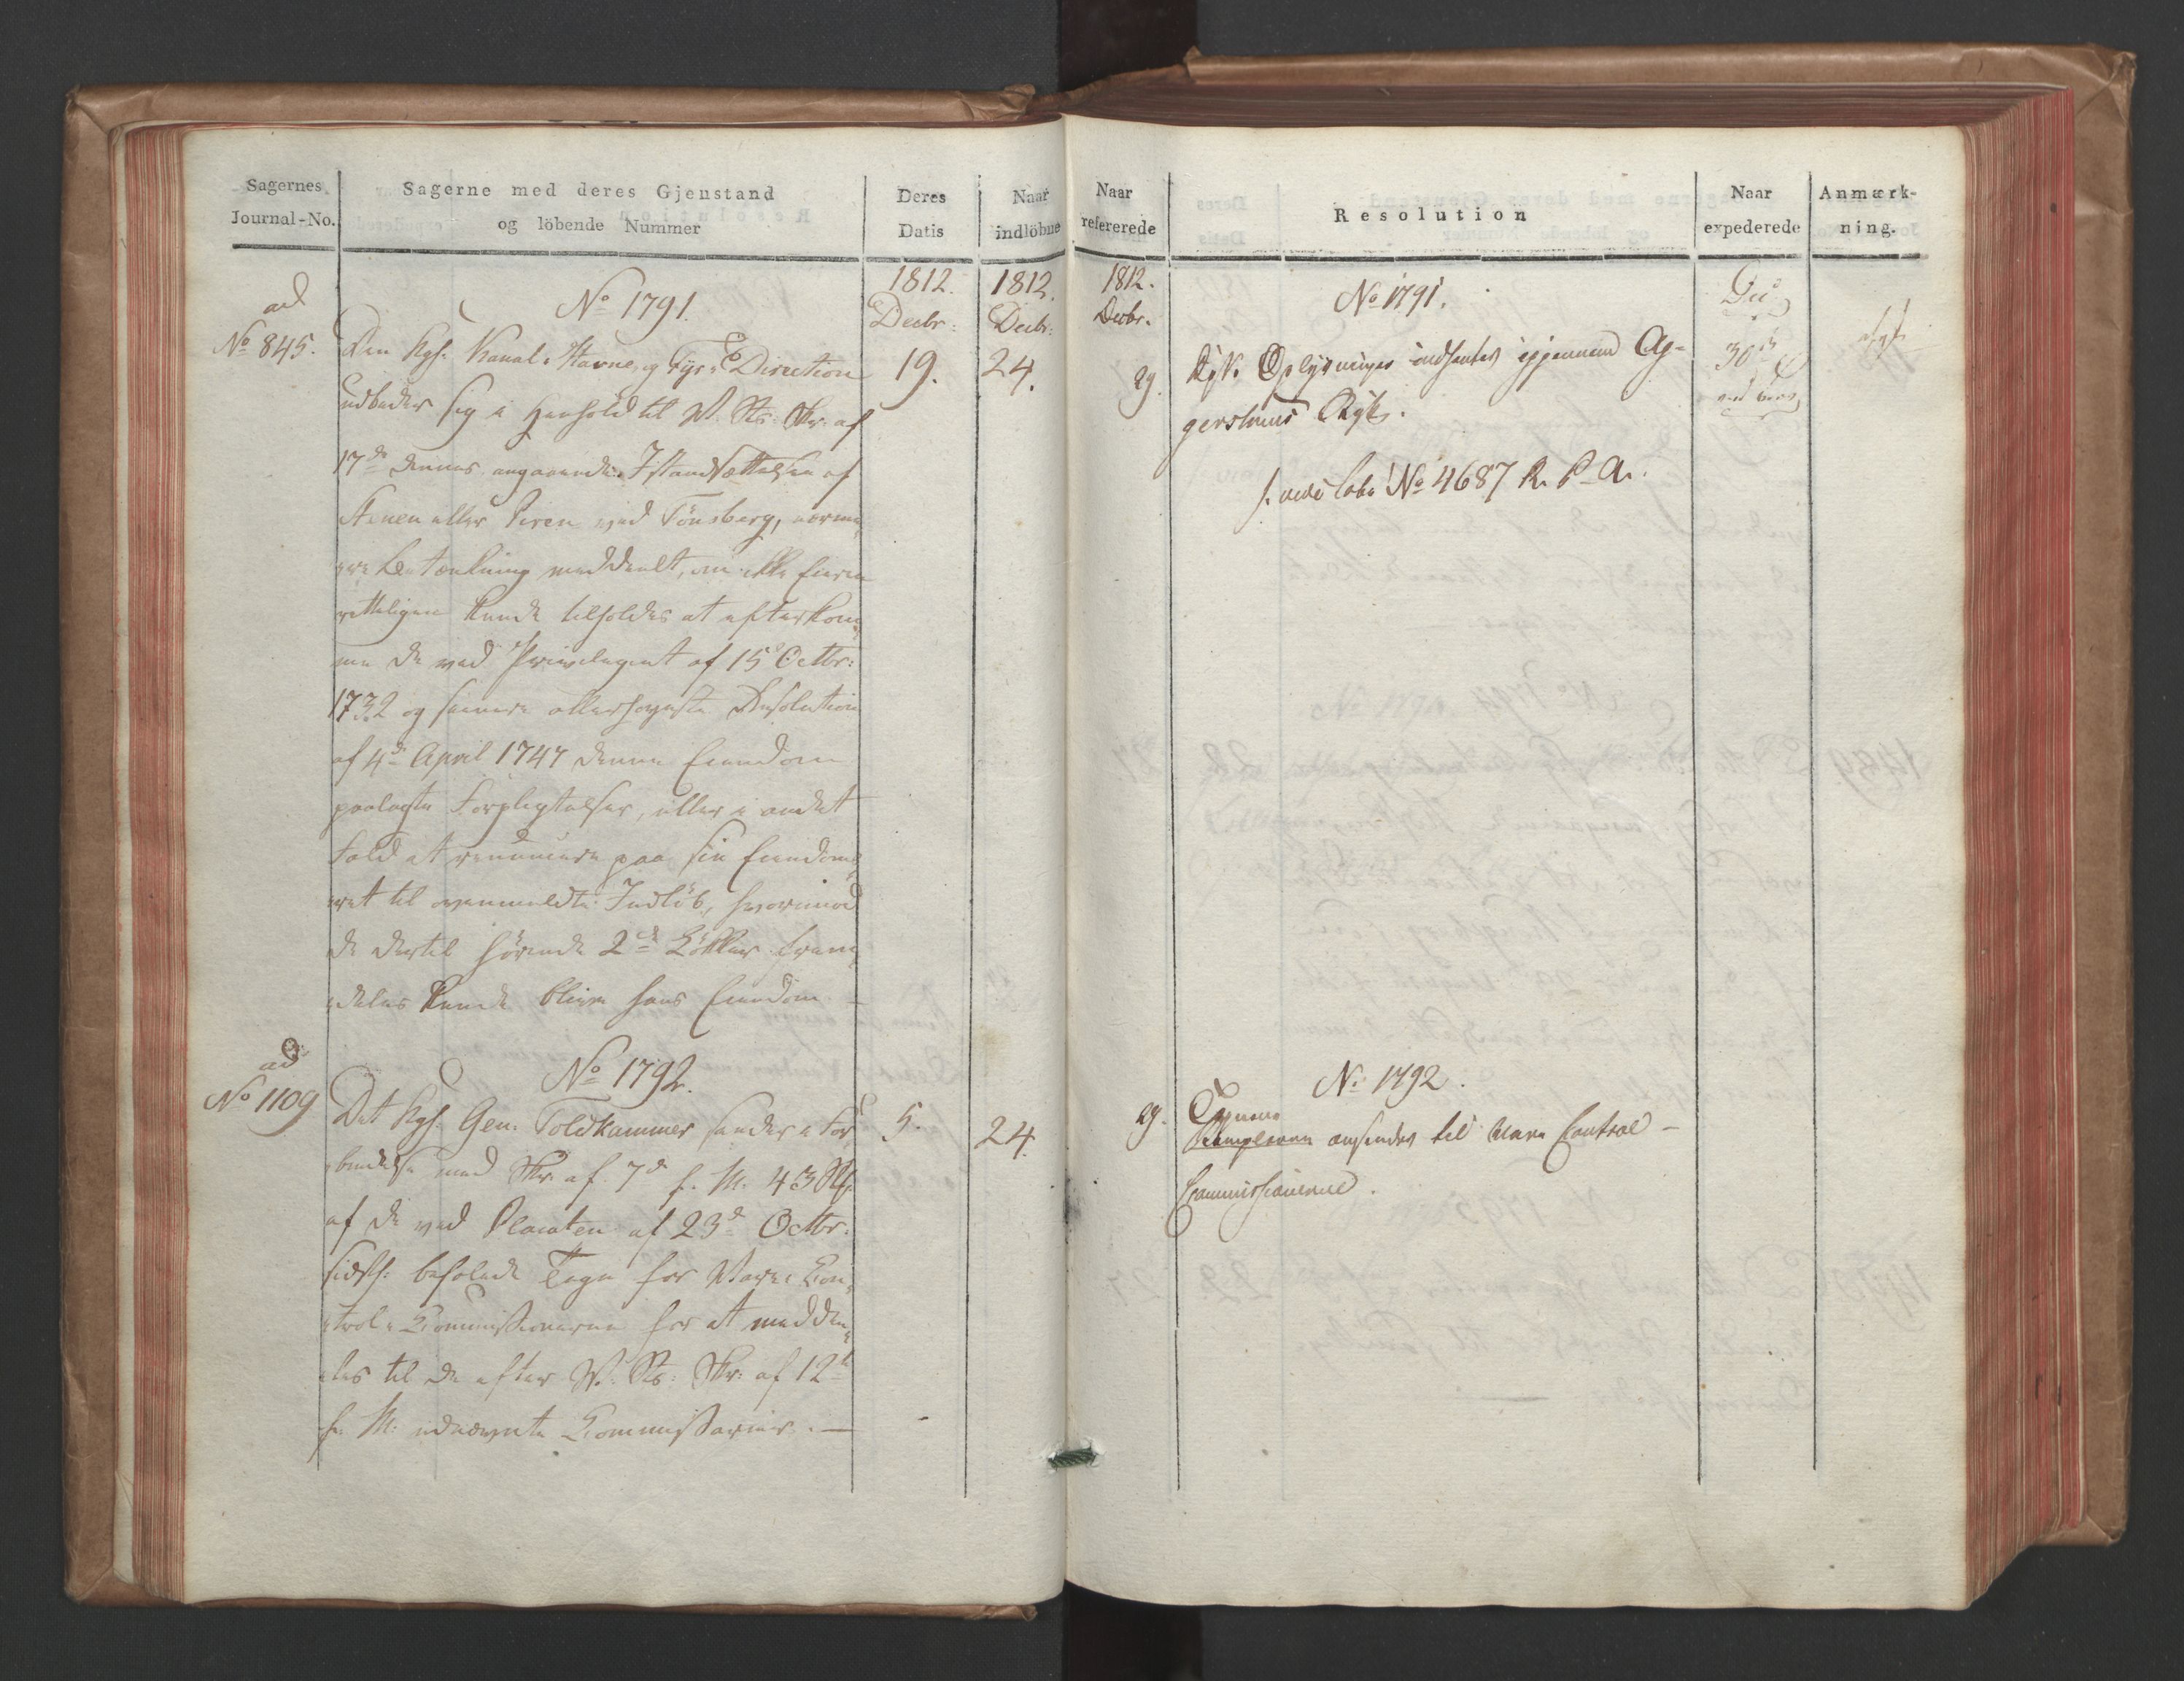 Sagernes
Journal-No.
Sagerne med deres Gjenstand
og löbende Nummer
Deres
Datis
Naar
indlöbne
Naar
refererede
Resolution
Naar
expederede
Anmærk-
ning.
1812.
Decbr:
1812.
Decbr:
1812.
Decbr.
ad
No 845.
No 1791.
Den Kgl. Kanal- Havne- og Fyr- Direction
udbeder sig i Henhold til
17de dennes angaaende Istandsættelsen af
eller Piren ved Tönsberg, nærme-
-re Betænkning meddeelt, om ikke Eieren
retteligen kunde tilholdes at efterkom-
me de ved Privilegiet af 15 Octbr:
1732 og senere allerhøyeste Resolution
af 4de April 1747 denne Eiendom
paalagte Forpligtelser, eller i andet
Fald at renuncere paa sin Eiendoms-
-ret til ovenmeldte Indlöb, hvorimod
de dertil hörende 2de Lökker frem-
-deles kunde blive hans Eiendom. —
19.
24.
29.
No 1791.
Oplysninger indhentes igjennem Ag-
gershuus
No 4687
30
ad
No 1109
No 1792.
Det Kgl. Gen. Toldkammer sender i For-
-bindelse med Skr. af 7de f. M. 43
af de ved Placaten af 23de Octbr.
sidstl. befalede Tegn for Vare- Con-
-trol- Commissionerne for at meddee-
-les til de efter Skr: af 12te
f. M. udnævnte Commissarier. —
5.
24.
29.
No 1792.
Tegnene
Exemplerne oversendes til Vare Control-
Commissionerne.